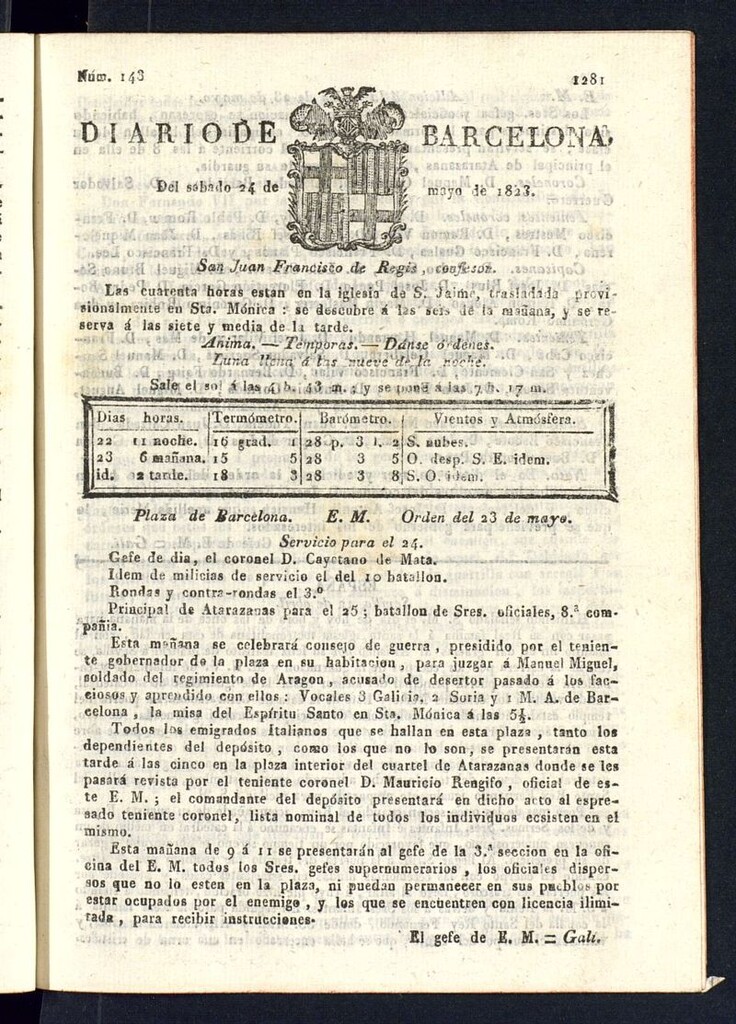 Núm. 143
1281
DIARIO DE BARCELONA,
Del sabado 24 de mayo de 1823.
San Juan Francisco de Regis, confesor.
Las cuarenta horas estan en la iglesia de S. Jaime, trasladada provi-
sionalmente en Sta. Mónica: se descubre á las seis de la mañana, y se re-
serva á las siete y media de la tarde.
Anima. — Temporas. — Danse órdenes.
Luna llena á las nueve de la noche.
Sale el sol á las 4 h. 43 m.; y se pone á las 7 h. 17 m.
Dias horas. Termómetro. Barómetro. Vientos y Atmósfera.
22 11 noche. 16 grad. 1 28 p. 3 l. 2 S. nubes.
23 6 mañana. 15 5 28 3 5 O. desp. S. E. idem.
id. 2 tarde. 18 3 28 3 8 S. O. idem.
Plaza de Barcelona. E. M. Orden del 23 de mayo.
Servicio para el 24.
Gefe de dia, el coronel D. Cayetano de Mata.
Idem de milicias de servicio el del 10 batallon.
Rondas y contra-rondas el 3.º
Principal de Atarazanas para el 25; batallon de Sres. oficiales, 8.ª com-
pañia.
Esta mañana se celebrará consejo de guerra, presidido por el tenien-
te gobernador de la plaza en su habitacion, para juzgar á Manuel Miguel,
soldado del regimiento de Aragon, acusado de desertor pasado á los fac-
ciosos y aprendido con ellos: Vocales 3 Galicia, 2 Soria y 1 M. A. de Bar-
celona, la misa del Espíritu Santo en Sta. Mónica á las 5½.
Todos los emigrados Italianos que se hallan en esta plaza, tanto los
dependientes del depósito, como los que no lo son, se presentarán esta
tarde á las cinco en la plaza interior del cuartel de Atarazanas donde se les
pasará revista por el teniente coronel D. Mauricio Rengifo, oficial de es-
te E. M.; el comandante del depósito presentará en dicho acto al espre-
sado teniente coronel, lista nominal de todos los individuos ecsisten en el
mismo.
Esta mañana de 9 á 11 se presentarán al gefe de la 3.ª seccion en la ofi-
cina del E. M. todos los Sres. gefes supernumerarios, los oficiales disper-
sos que no lo esten en la plaza, ni puedan permanecer en sus pueblos por
estar ocupados por el enemigo, y los que se encuentren con licencia ilimi-
tada, para recibir instrucciones.
El gefe de E. M. = Galí.